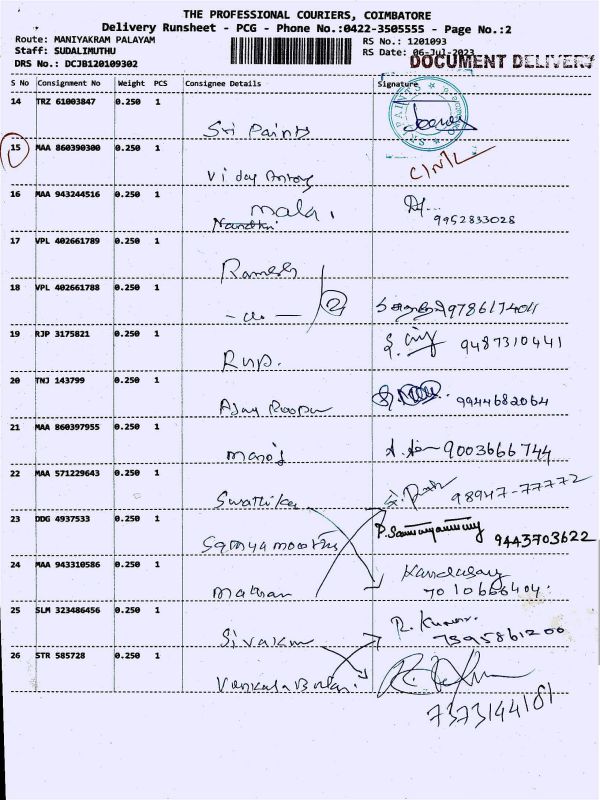 THE PROFESSIONAL COURIERS, COIMBATORE
Delivery Runsheet - PCG - Phone No.:0422-3505555 - Page No.:2
Route: MANIYAKRAM PALAYAM RS No.: 1201093
Staff: SUDALIMUTHU RS Date: 06-Jul-2023
DRS No.: DCJB120109302 DOCUMENT DELIVERY
S No Consignment No Weight PCS Consignee Details Signature
14 TRZ 61003847 0.250 1
Sri Paints
15 MAA 860390300 0.250 1
Vijay Antony
16 MAA 943244516 0.250 1
Mala.
Nandhi 9952833028
17 VPL 402661789 0.250 1
Ramesh
18 VPL 402661788 0.250 1
- do - 2 9786174011
19 RJP 3175821 0.250 1
9487310441
20 TNJ 143799 0.250 1
Ajay 9944682064
21 MAA 860397955 0.250 1
Manoj 9003666744
22 MAA 571229643 0.250 1
Swathika 98947-77772
23 DDG 4937533 0.250 1
9443703622
24 MAA 943310586 0.250 1
Kandasay
7010666404.
25 SLM 323486456 0.250 1
Sivakum R. Kumar.
7395861200
26 STR 585728 0.250 1
Venkata Balan.
7373144181